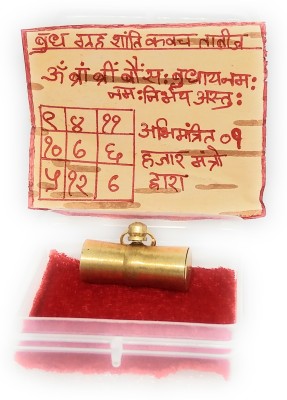 बुध ग्रह शांति कवच ताबीज
ॐ ब्रां ब्रीं बौंसः बुधायनमः
नमः निर्भय अस्तुः
९ ४ ११
१० ८ ६
५ १२ ७
अभिमंत्रित ०१
हजार मंत्रो
द्वारा